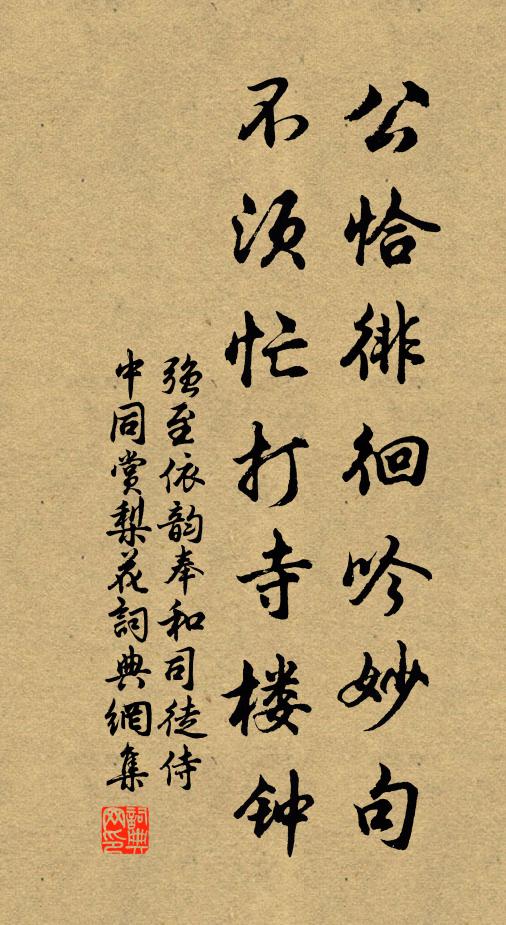 公恰徘徊吟妙句
不须忙打寺楼钟
强至依韵奉和司徒侍
中同赏梨花詞典網集
詞典網印